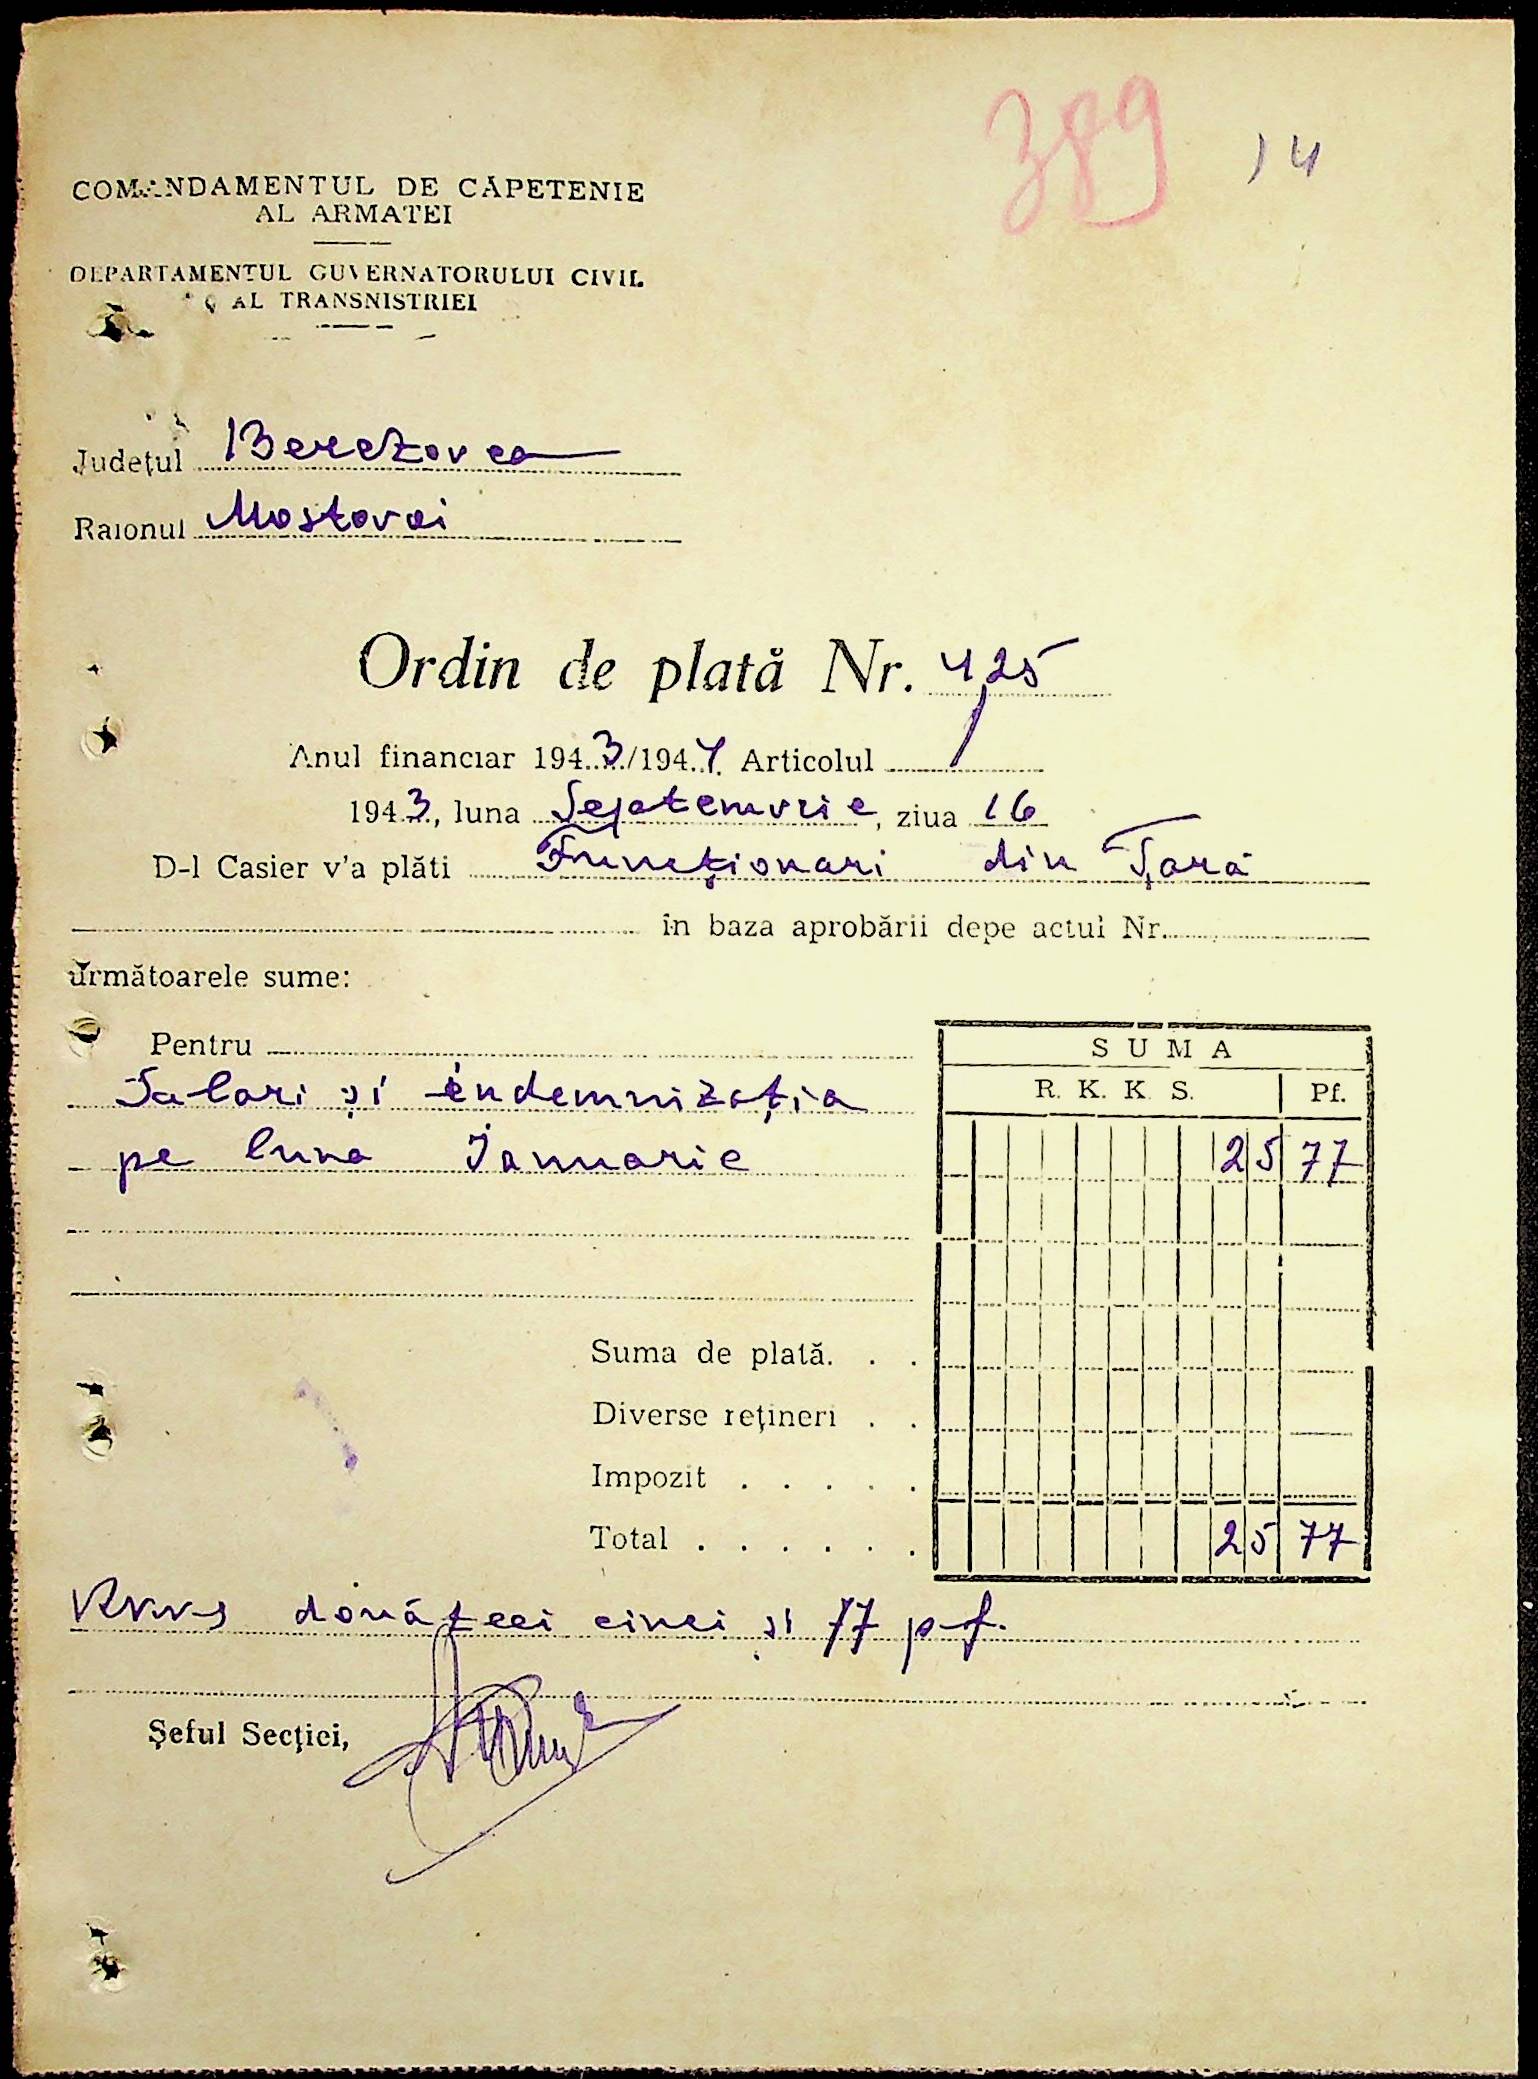 389 14
COMANDAMENTUL DE CĂPETENIE
AL ARMATEI
DEPARTAMENTUL GUVERNATORULUI CIVIL
AL TRANSNISTRIEI
Judeţul Berezovca
Raionul Mostovoi
Ordin de plată Nr. 425
Anul financiar 1943/1944 Articolul 1
1943, luna Septemvrie, ziua 16
D-l Casier v'a plăti Funcţionari din Ţară
în baza aprobării depe actul Nr.
următoarele sume:
Pentru
Salari şi indemnizaţia
pe luna Ianuarie
SUMA
R. K. K. S. Pf.
25 77
Suma de plată. . .
Diverse reţineri . .
Impozit . . . . .
Total . . . . . . 25 77
douăzeci cinci şi 77 pf.
Şeful Secţiei,